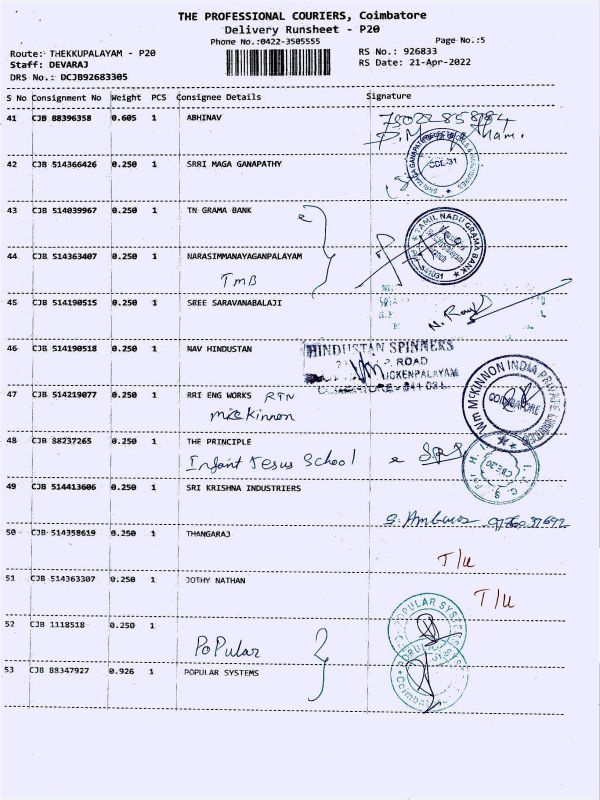 THE PROFESSIONAL COURIERS, Coimbatore
Delivery Runsheet - P20
Phone No.:0422-3505555
Page No.:5
Route: THEKKUPALAYAM - P20
RS No.: 926833
Staff: DEVARAJ
RS Date: 21-Apr-2022
DRS No.: DCJB92683305
S No Consignment No Weight PCS Consignee Details Signature
41 CJB 88396358 0.605 1 ABHINAV
42 CJB 514366426 0.250 1 SRRI MAGA GANAPATHY
CDL-31
43 CJB 514039967 0.250 1 TN GRAMA BANK
TAMIL NADU GRAMA BANK
641031
44 CJB 514363407 0.250 1 NARASIMMANAYAGANPALAYAM
TMB
45 CJB 514190515 0.250 1 SREE SARAVANABALAJI
46 CJB 514190518 0.250 1 NAV HINDUSTAN
HINDUSTAN SPINNERS
ROAD
47 CJB 514219077 0.250 1 RRI ENG WORKS RTN
Mickinnon
Wm McKINNON INDIA PRIVATE LIMITED
COIMBATORE
48 CJB 88237265 0.250 1 THE PRINCIPLE
Infant Jesus School
49 CJB 514413606 0.250 1 SRI KRISHNA INDUSTRIERS
50 CJB 514358619 0.250 1 THANGARAJ
T/U
51 CJB 514363307 0.250 1 JOTHY NATHAN
T/U
52 CJB 1118518 0.250 1
Popular
POPULAR SYSTEMS
53 CJB 88347927 0.926 1 POPULAR SYSTEMS